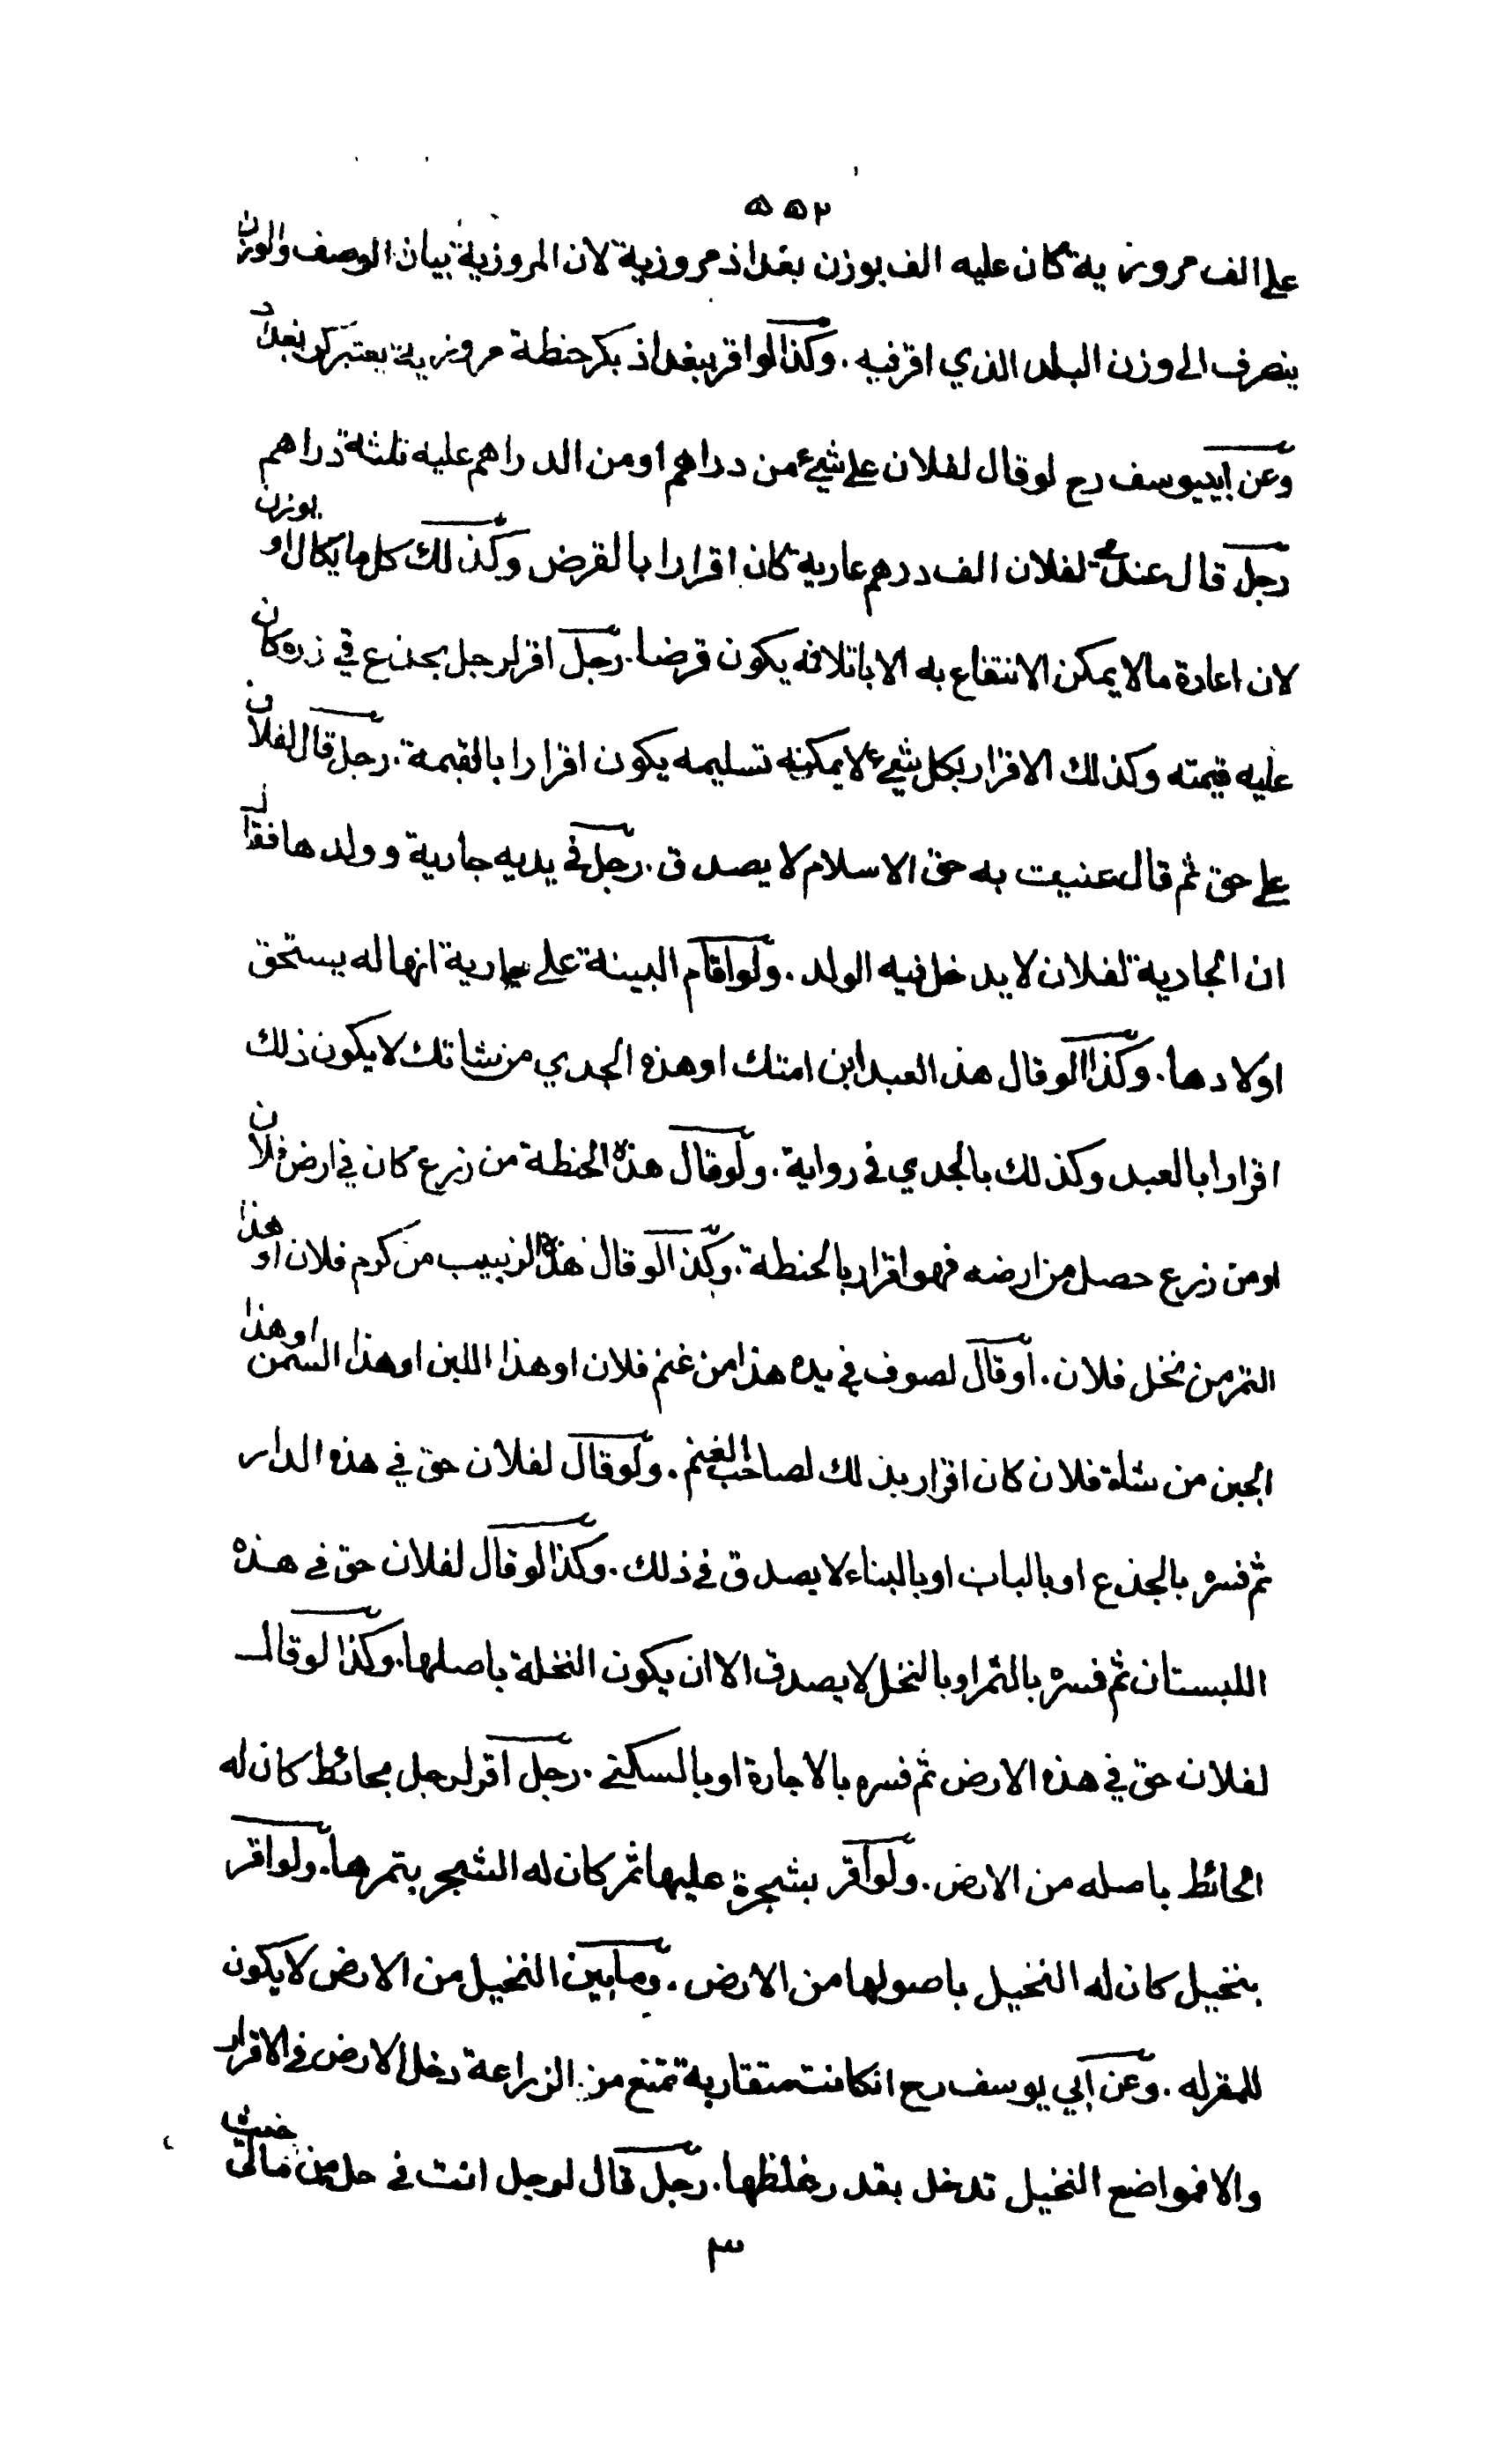 ٥٥٢
علي الف مروزية كان عليه الف بوزن بغداذ مروزية لان المروزية بيان الوصف والوزن
ينصرف الى وزن البلد الذي اقر فيه . وكذا لو اقر ببغداذ بكر حنطة مروزية يعتبر كر بغداد
وعن ابي يوسف رح لو قال لفلان علي شيء من دراهم او من الدراهم عليه ثلثة دراهم
رجل قال عندي لفلان الف درهم عارية كان اقرارا بالقرض وكذلك كل ما يكال او يوزن
لان اعارة ما لا يمكن الانتفاع به الا باتلافه يكون قرضا . رجل اقر لرجل بجذع في زره كان
عليه قيمته وكذلك الاقرار بكل شيء لا يمكنه تسليمه يكون اقرارا بالقيمة . رجل قال لفلان
علي حق ثم قال عنيت به حق الاسلام لا يصدق . رجل في يديه جارية وولدها فقال
ان الجارية لفلان لا يدخل فيه الولد . ولو اقام البينة على جارية انها له يستحق
اولادها . وكذا لو قال هذا العبد ابن امتك او هذه الجدي من شاتك لا يكون ذلك
اقرارا بالعبد وكذلك بالجدي في رواية . ولو قال هذه الحنطة من زرع كان في ارض فلان
او من زرع حصل من ارضه فهو اقرار بالحنطة . وكذا لو قال هذه الزبيب من كرم فلان او هذا
التمر من نخل فلان . او قال لصوف في يده هذا من غنم فلان او هذا اللبن او هذا السمن او هذا
الجبن من شاة فلان كان اقرار بذلك لصاحب الغنم . ولو قال لفلان حق في هذه الدار
ثم فسره بالجذع او بالباب او بالبناء لا يصدق في ذلك . وكذا لو قال لفلان حق في هذه
اللبستان ثم فسره بالثمر او بالنخل لا يصدق الا ان يكون النخلة باصلها . وكذا لو قال
لفلان حق في هذه الارض ثم فسره بالاجارة او بالسكنى . رجل اقر لرجل بحائط كان له
الحائط باصله من الارض . ولو اقر بشجرة عليها ثمر كان له الشجر بثمرها . ولو اقر
بنخيل كان له النخيل باصولها من الارض . وما بين النخيل من الارض لا يكون
للمقر له . وعن ابي يوسف رح ان كانت متقاربة تمنع من الزراعة دخل الارض في الاقرار
والا فمواضع النخيل تدخل بقدر غلظها . رجل قال لرجل انت في حل من مالي
٣